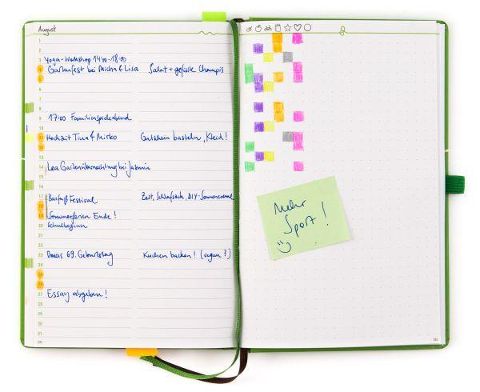 August
Yoga-Workshop 14:00-18:00
Gartenfest bei Micha & Lisa Salat + gefüllte Champis
17:00 Familienspieleabend
Hochzeit Tina & Mirko Gutschein basteln, Kleid!
Lea Gartenübernachtung bei Jasmin
Barfuß Festival Zelt, Schlafsack, DIY-Sonnencreme
Sommerferien Ende!
Schulbeginn
Omas 69. Geburtstag Kuchen backen! (vegan?)
Essay abgeben!
Mehr
Sport!